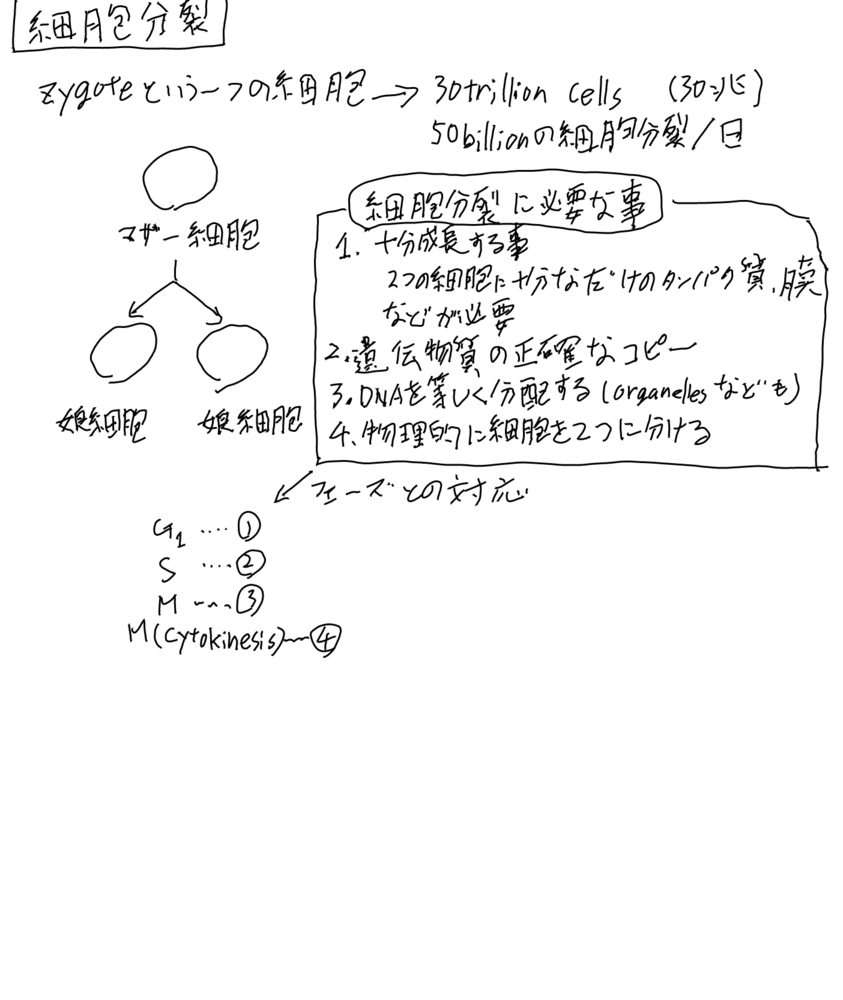 細胞分裂
zygoteという一つの細胞→30trillion cells (30兆)
50billionの細胞分裂/日
マザー細胞
娘細胞 娘細胞
細胞分裂に必要な事
1. 十分成長する事
2つの細胞に十分なだけのタンパク質、膜
などが必要
2.遺伝物質の正確なコピー
3.DNAを等しく分配する(organellesなども)
4.物理的に細胞を2つに分ける
フェーズとの対応
G1 ....①
S ....②
M ----③
M(cytokinesis)---④